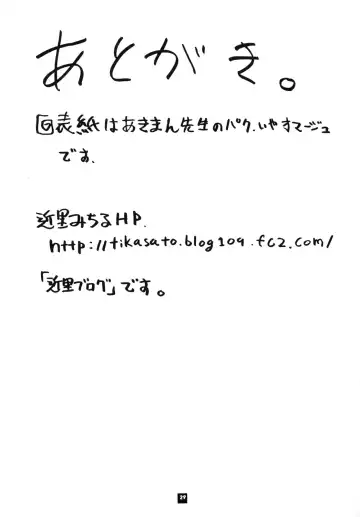 あとがき。
回表紙はあきまん先生のパク、いやオマージュ
です.
近里みちるHP.
http://tikasato.blog109.fc2.com/
「近里ブログ」です。
29